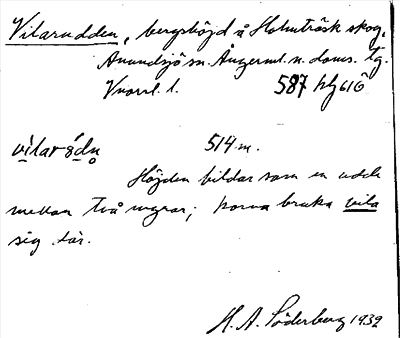 Vilarudden, bergshöjd å Holmträsk skog,
Anundsjö sn. Ångerml. n. doms. tg.
Vnorrl. l. 587 Hg 616
514 m.
Höjden bildar som en udde
mellan två myrar; korna bruka vila
sig där.
H. A. Söderberg 1932